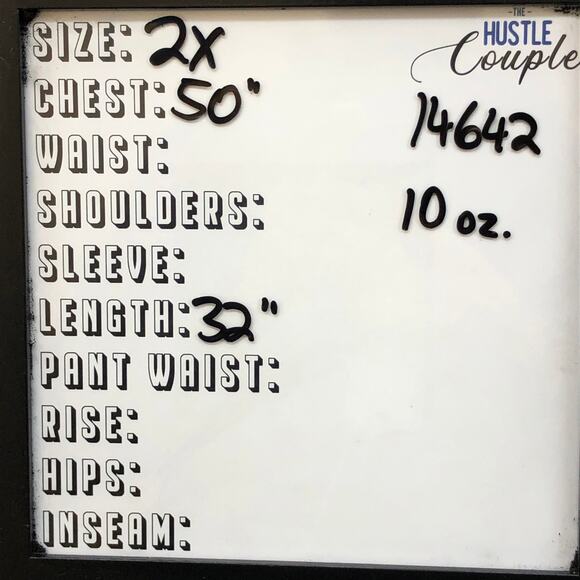 SIZE: 2X
CHEST: 50"
WAIST:
SHOULDERS:
SLEEVE:
LENGTH: 32"
PANT WAIST:
RISE:
HIPS:
INSEAM:
-THE-
HUSTLE
Couple
14642
10 oz.